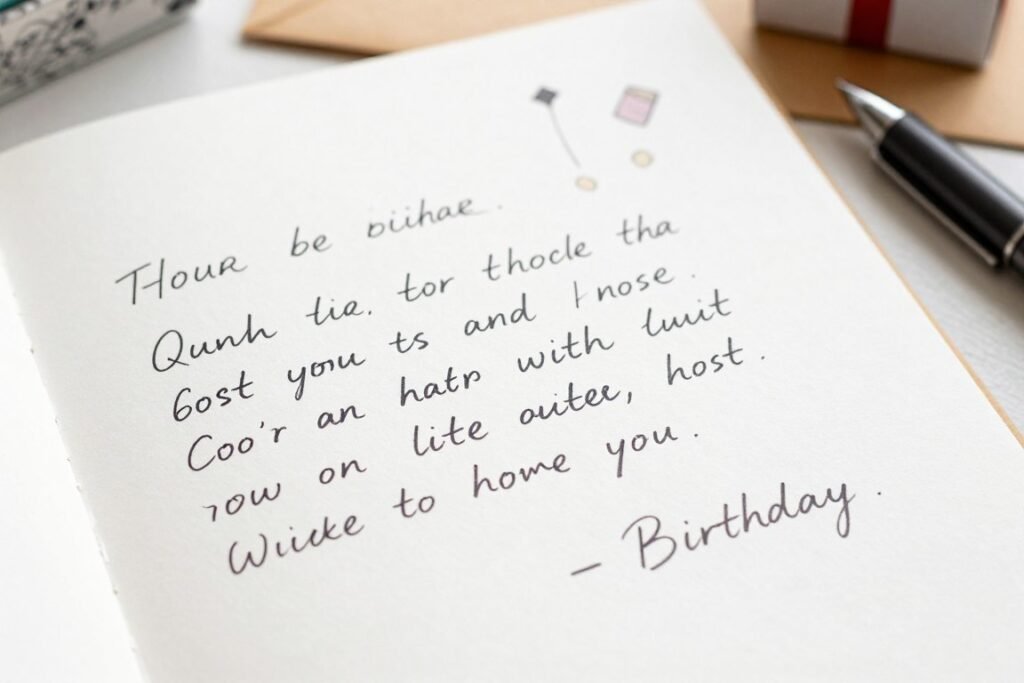 Hour be
Qunh tia. tor thocle tha
Gost you ts and nose.
Coo'r an hatr with luuit
row on lite auter, host.
to home you.
– Birthday.